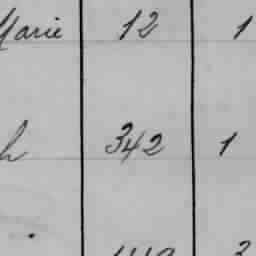 Marie 12 1
h 342 1